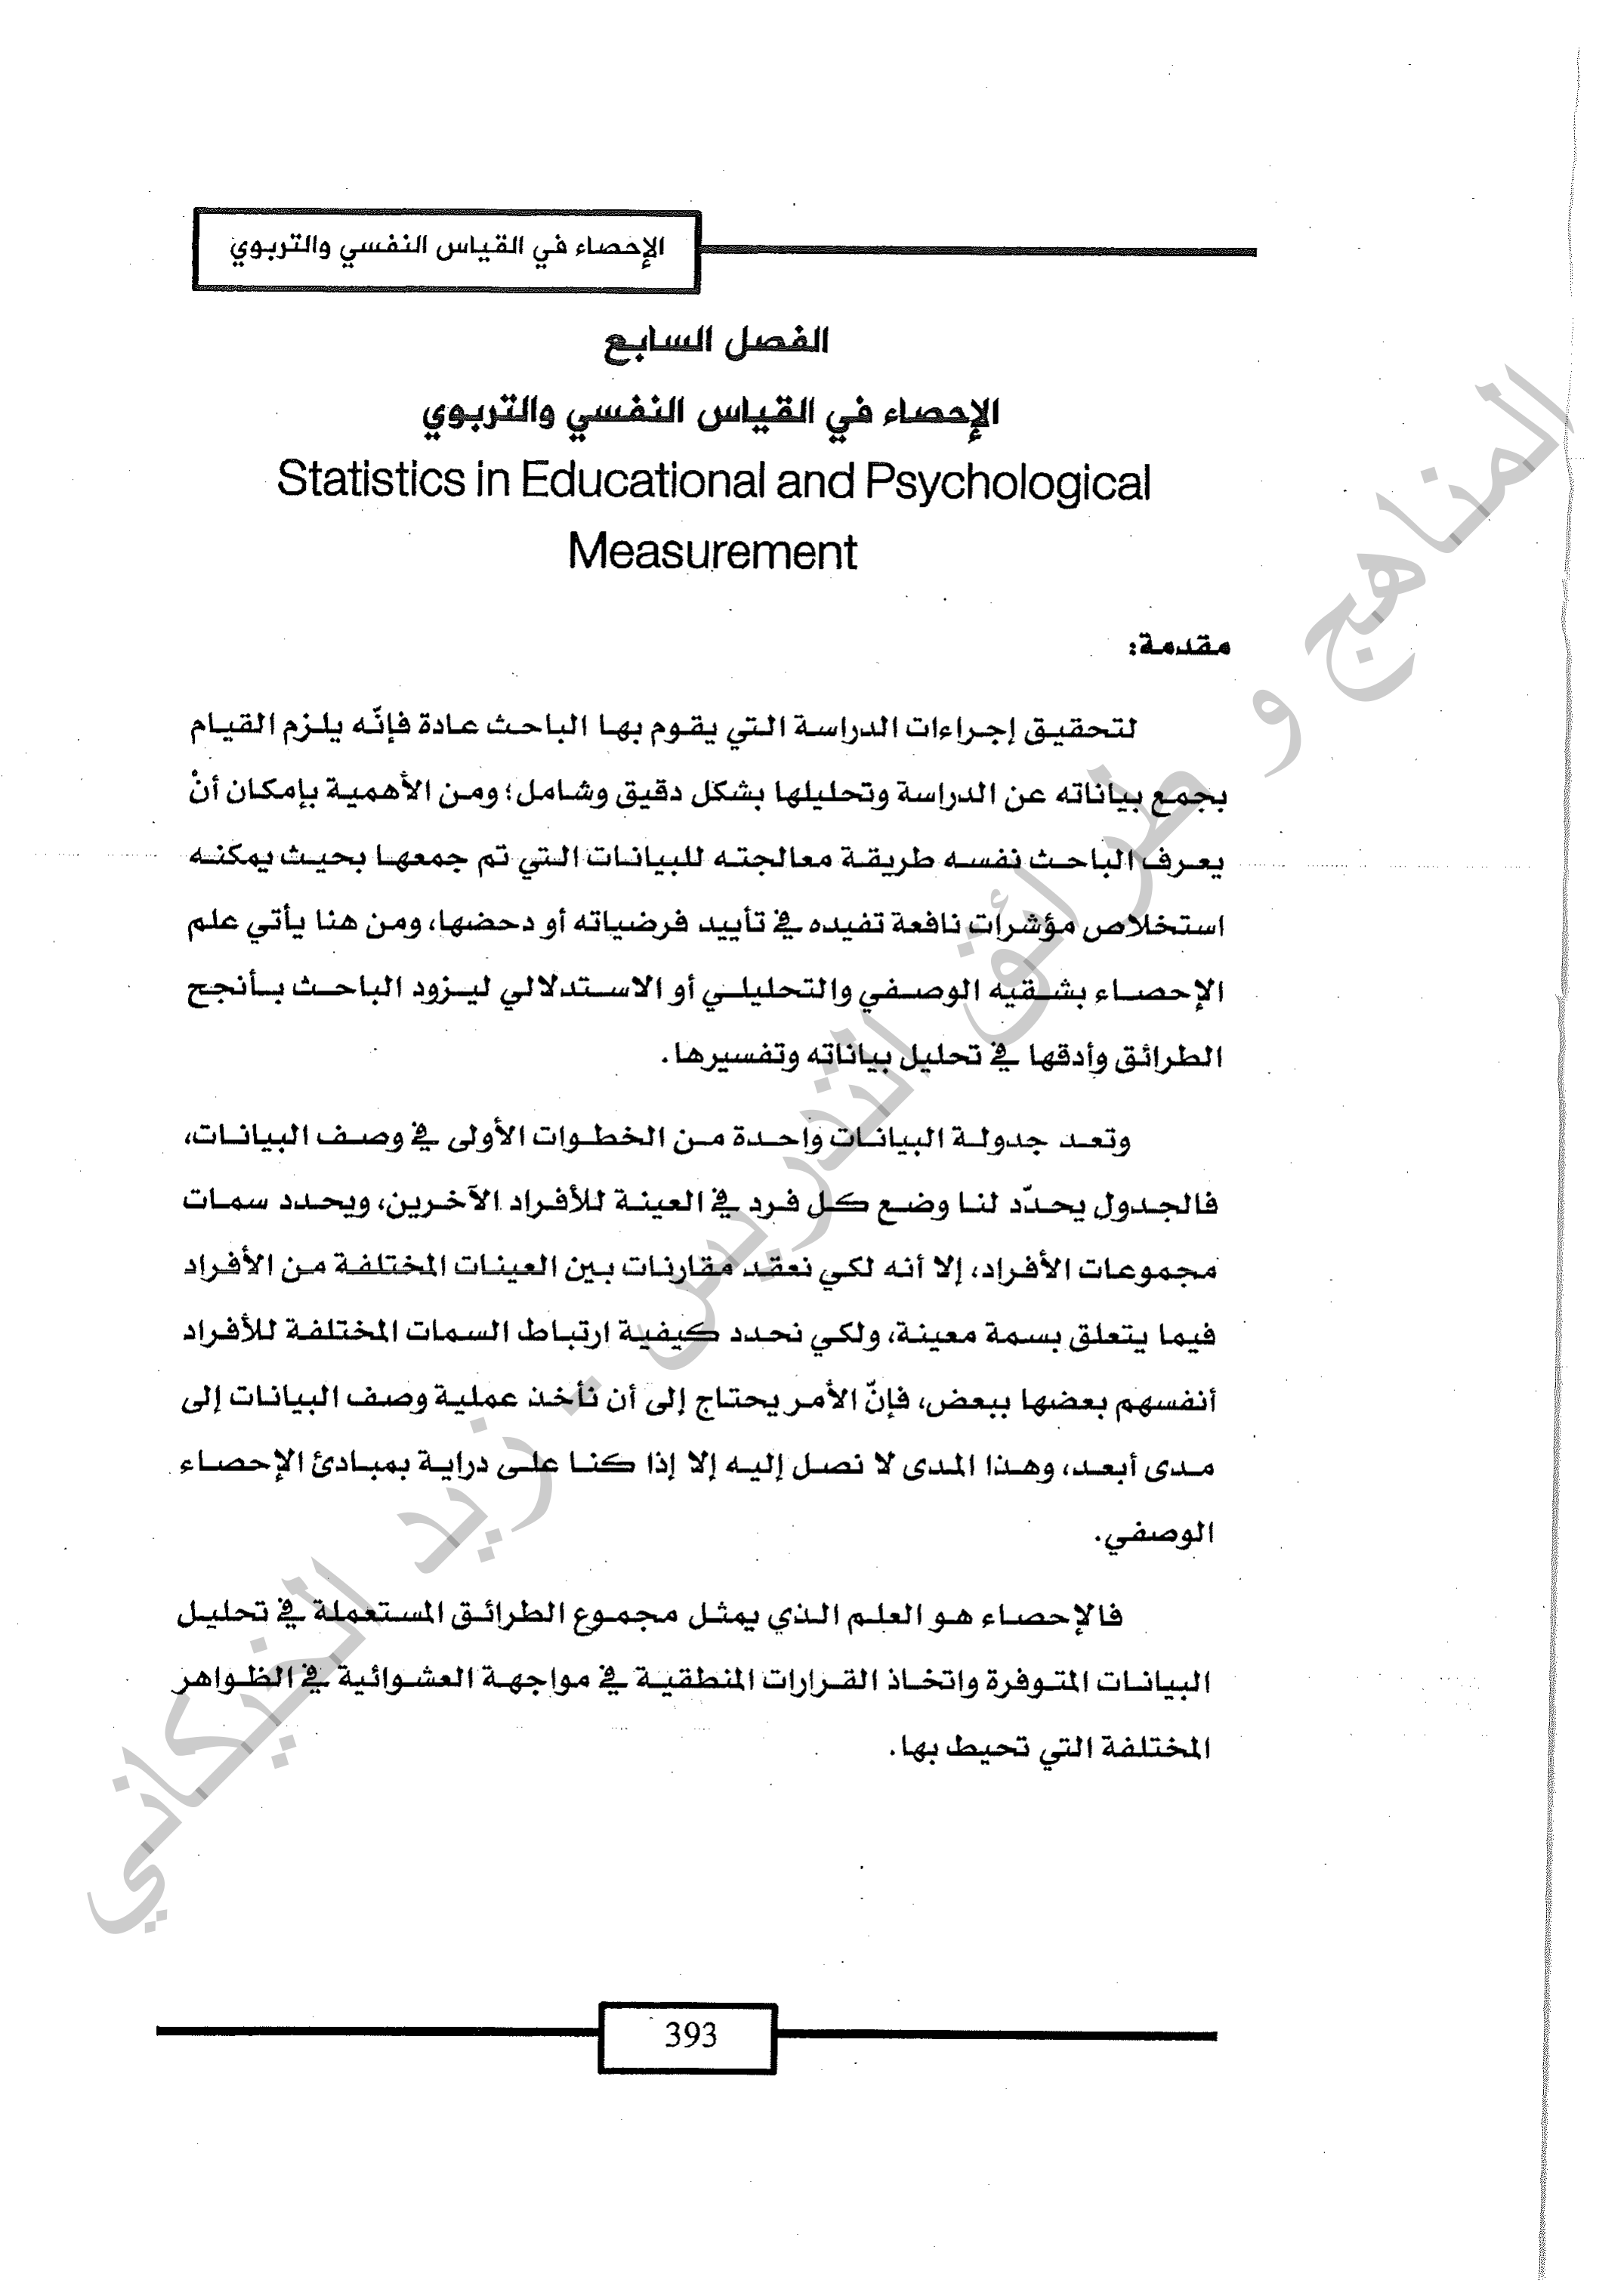 الإحصاء في القياس النفسي والتربوي
الفصل السابع
الإحصاء في القياس النفسي والتربوي
Statistics in Educational and Psychological
Measurement
مقدمة:
لتحقيق إجراءات الدراسة التي يقوم بها الباحث عادة فإنّه يلزم القيام
بجمع بياناته عن الدراسة وتحليلها بشكل دقيق وشامل؛ ومن الأهمية بإمكان أنْ
يعرف الباحث نفسه طريقة معالجته للبيانات التي تم جمعها بحيث يمكنه
استخلاص مؤشرات نافعة تفيده في تأييد فرضياته أو دحضها، ومن هنا يأتي علم
الإحصاء بشقيه الوصفي والتحليلي أو الاستدلالي ليزود الباحث بأنجح
الطرائق وأدقها في تحليل بياناته وتفسيرها.
وتعد جدولة البيانات واحدة من الخطوات الأولى في وصف البيانات،
فالجدول يحدّد لنا وضع كل فرد في العينة للأفراد الآخرين، ويحدد سمات
مجموعات الأفراد، إلا أنه لكي نعقد مقارنات بين العينات المختلفة من الأفراد
فيما يتعلق بسمة معينة، ولكي نحدد كيفية ارتباط السمات المختلفة للأفراد
أنفسهم بعضها ببعض، فإنّ الأمر يحتاج إلى أن نأخذ عملية وصف البيانات إلى
مدى أبعد، وهذا المدى لا نصل إليه إلا إذا كنا على دراية بمبادئ الإحصاء
الوصفي.
فالإحصاء هو العلم الذي يمثل مجموع الطرائق المستعملة في تحليل
البيانات المتوفرة واتخاذ القرارات المنطقية في مواجهة العشوائية في الظواهر
المختلفة التي تحيط بها.
393
المناهج و طرائق التدريس - زيد الخيكاني